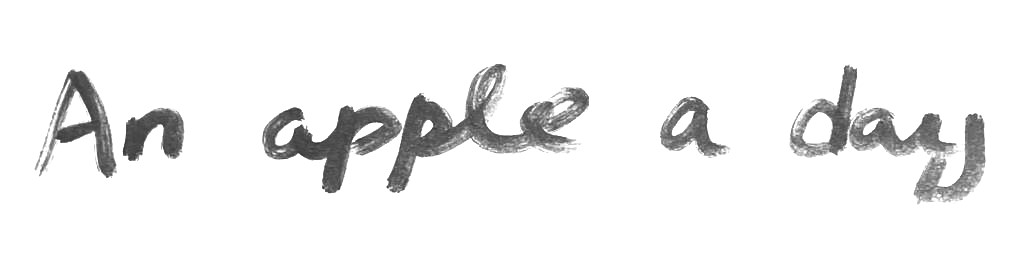 An apple a day